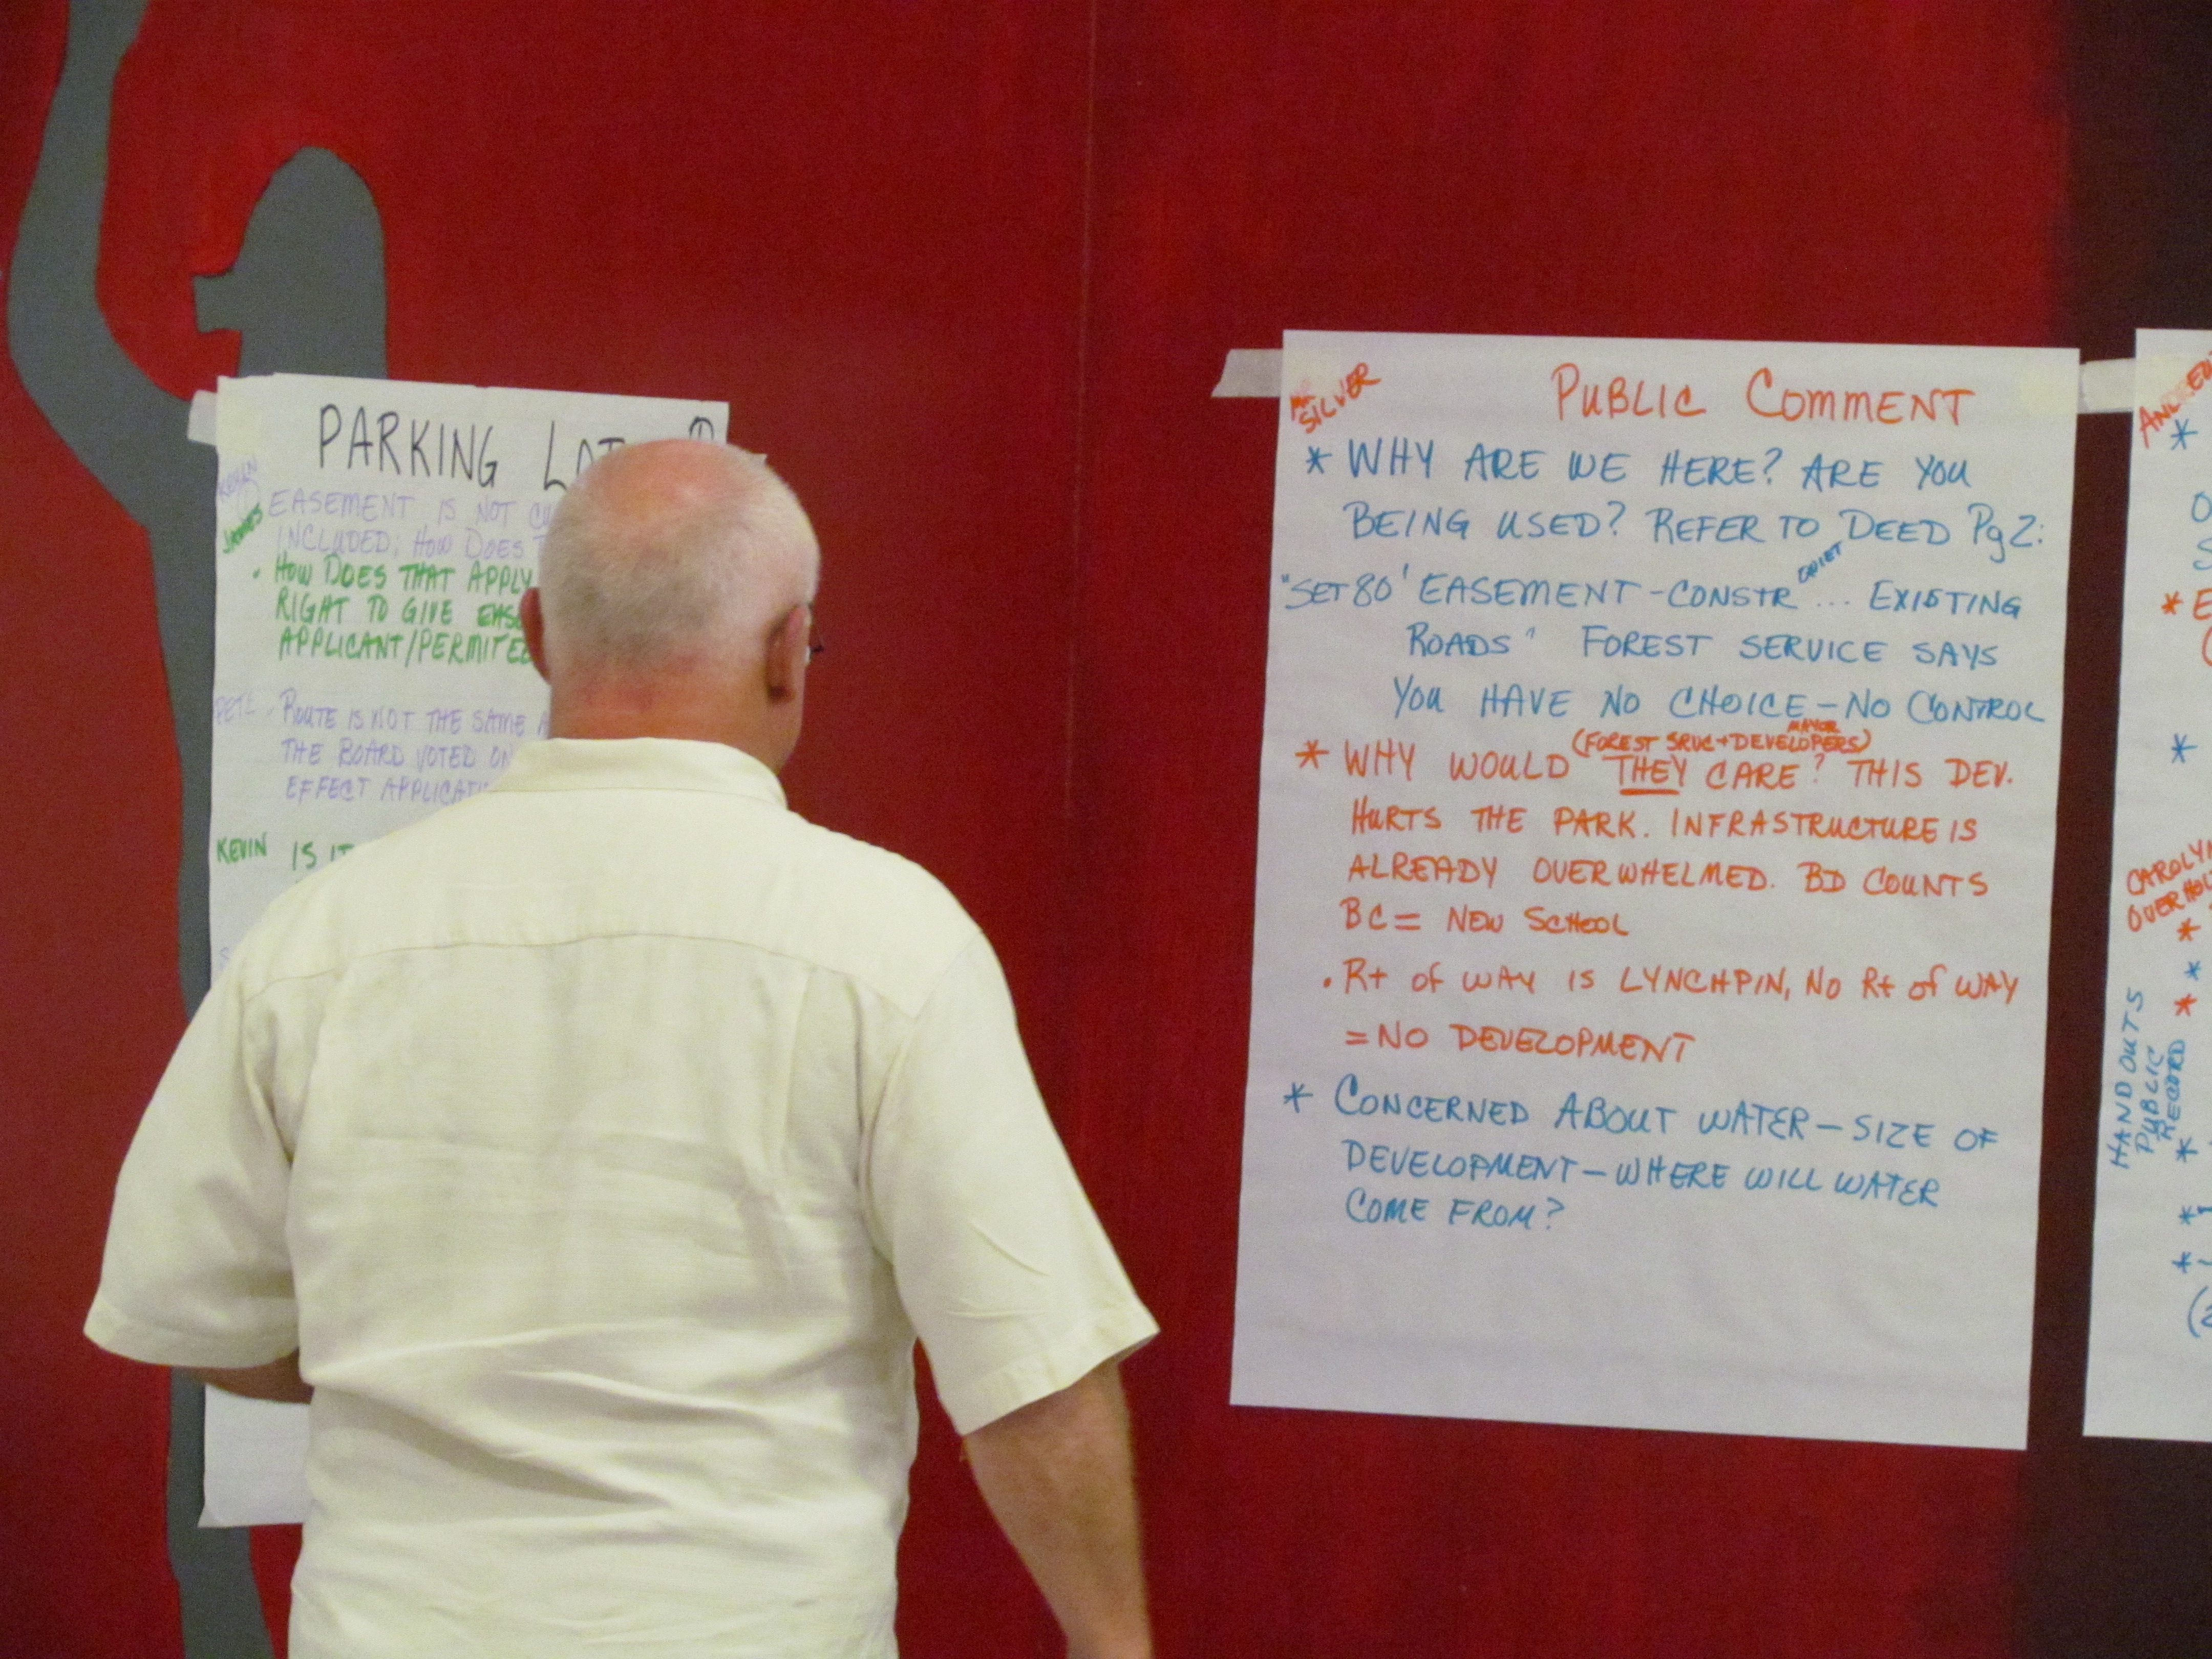 PARKING LOT
JAMES
EASEMENT IS NOT
INCLUDED; HOW DOES
• HOW DOES THAT APPLY
RIGHT TO GIVE
APPLICANT/PERMITEE
PETE - ROUTE IS NOT THE SAME
THE BOARD VOTED ON
EFFECT
KEVIN IS IT
MR SILVER
PUBLIC COMMENT
* WHY ARE WE HERE? ARE YOU
BEING USED? REFER TO DEED Pg 2:
QUIET
"SET 80' EASEMENT - CONSTR ... EXISTING
ROADS" FOREST SERVICE SAYS
YOU HAVE NO CHOICE - NO CONTROL
MAYOR
(FOREST SRVC + DEVELOPERS)
* WHY WOULD THEY CARE? THIS DEV.
HURTS THE PARK. INFRASTRUCTURE IS
ALREADY OVERWHELMED. BD COUNTS
BC = NEW SCHOOL
• Rt of WAY IS LYNCHPIN, NO Rt of WAY
= NO DEVELOPMENT
* CONCERNED ABOUT WATER - SIZE OF
DEVELOPMENT - WHERE WILL WATER
COME FROM?
CAROLYN
HANDOUTS
PUBLIC
RECORD